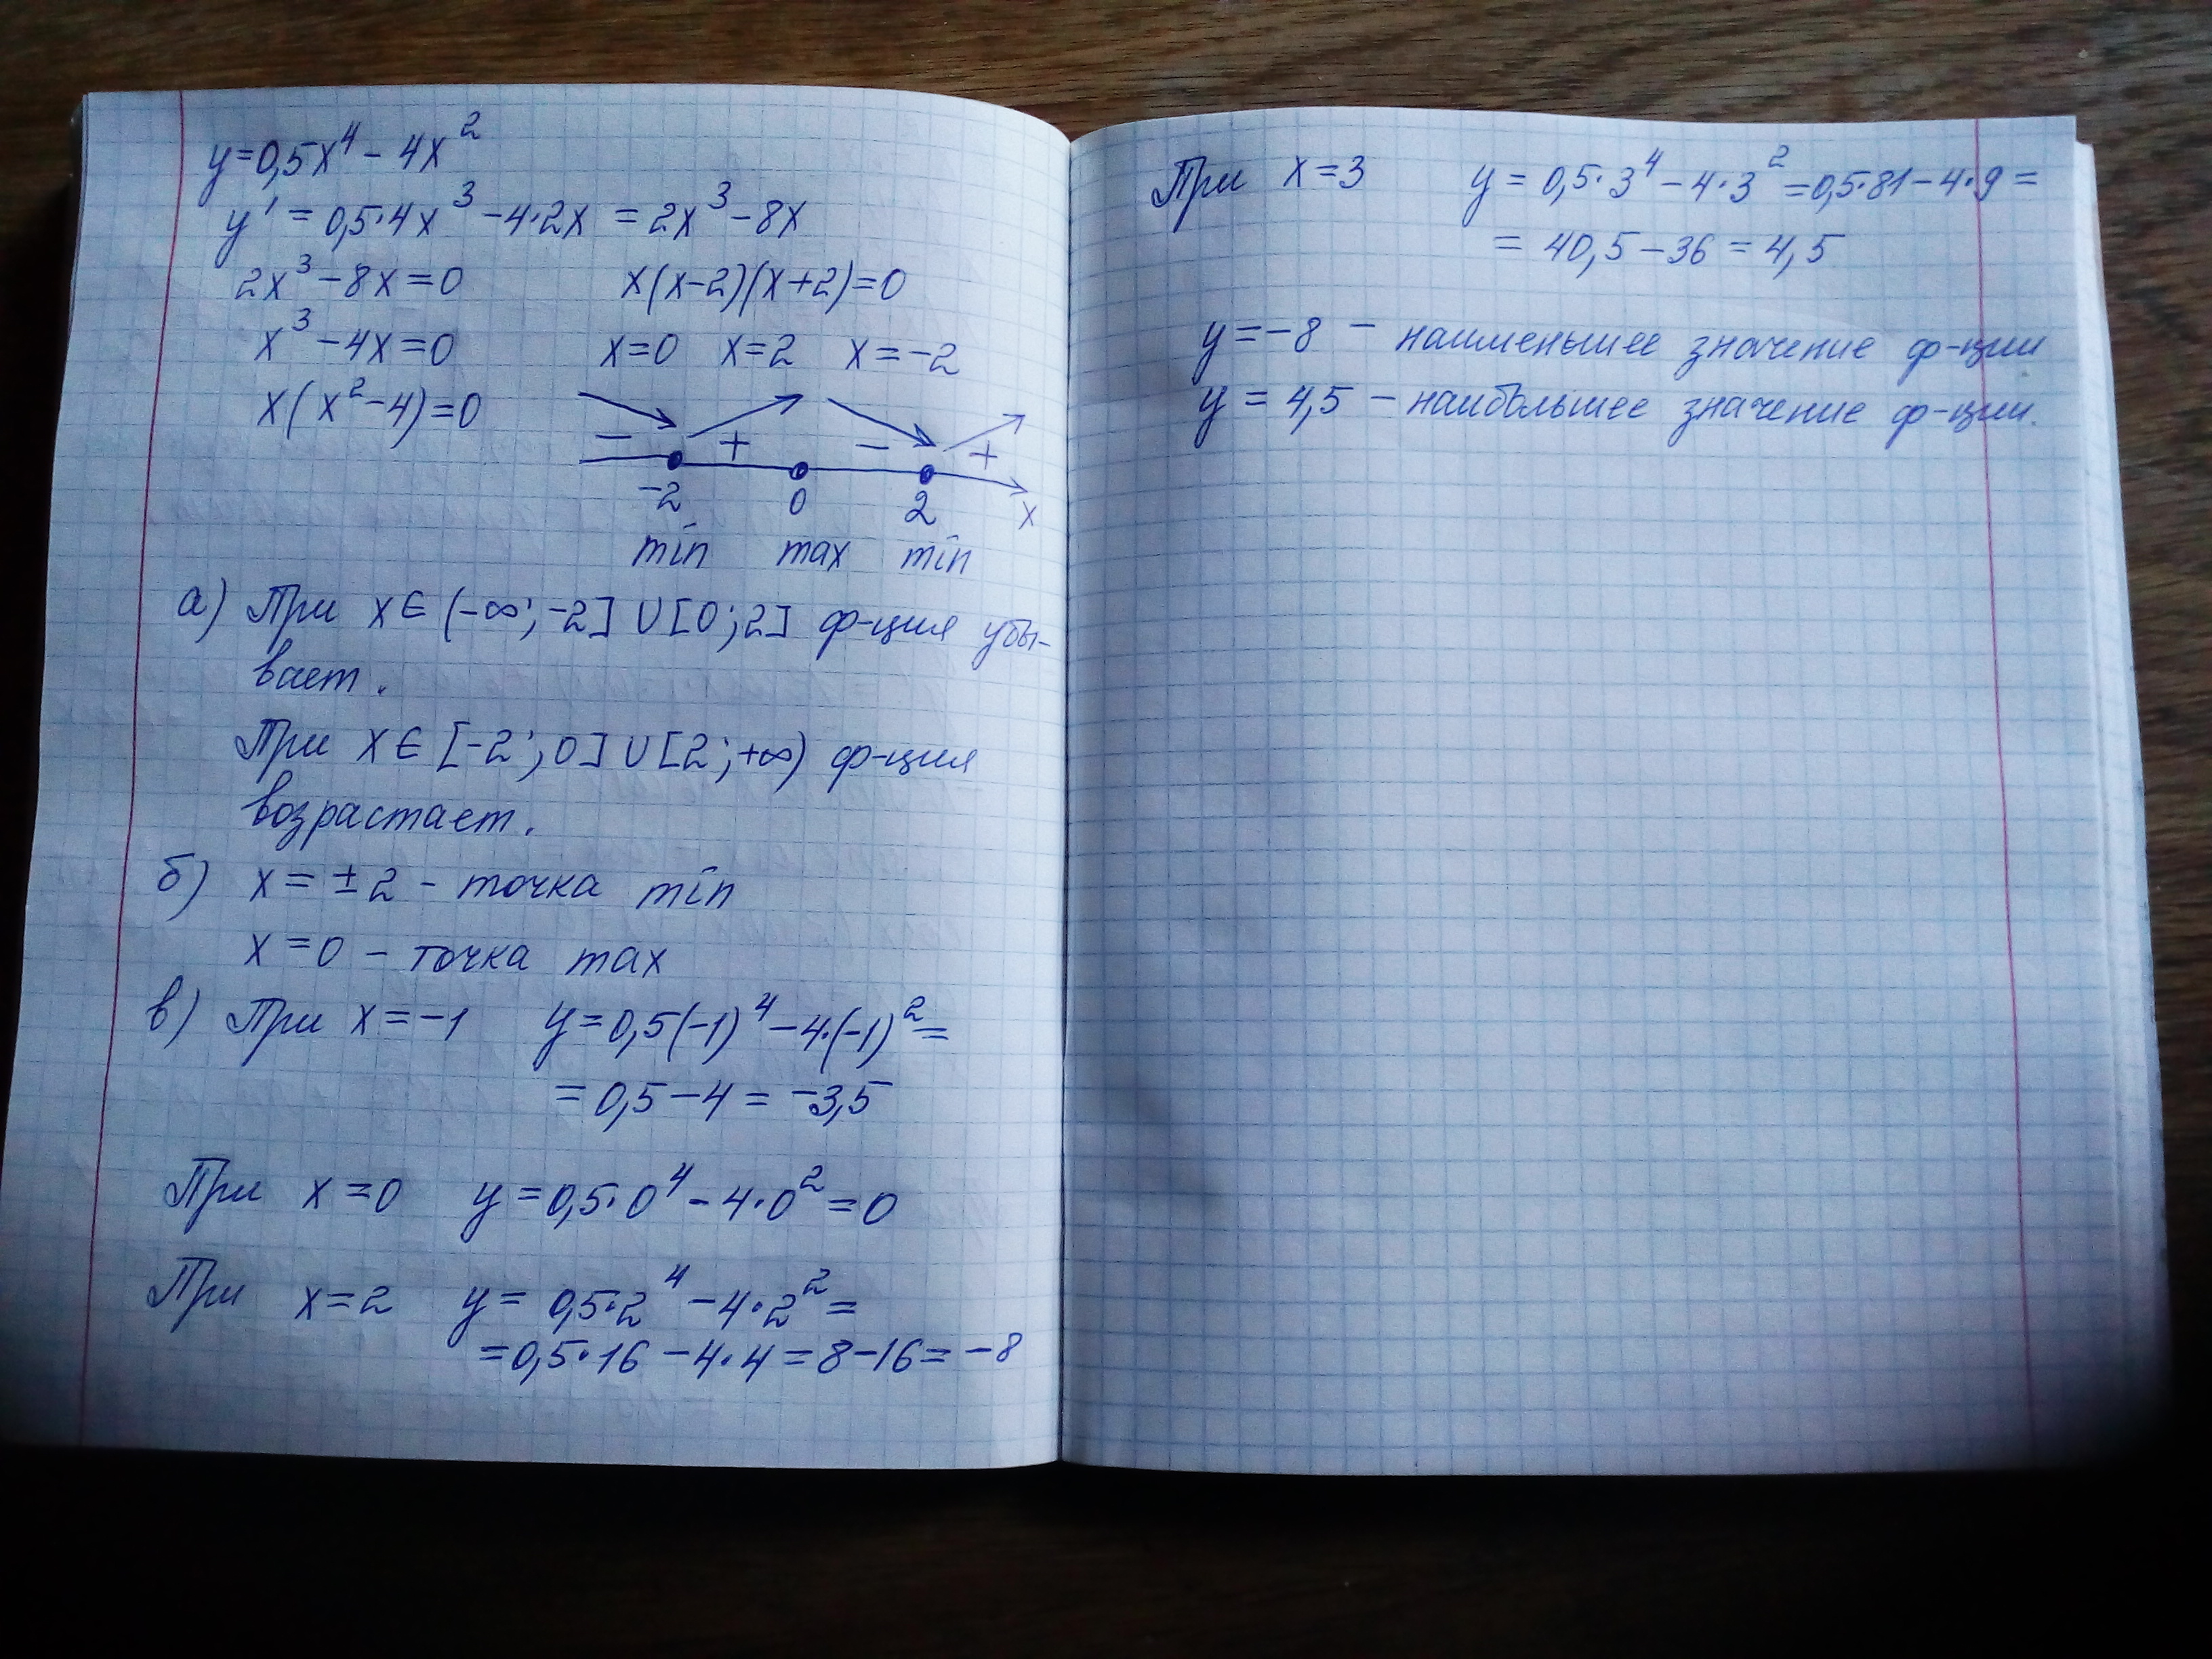 y=0,5x⁴ - 4x²
y' = 0,5·4x³ - 4·2x = 2x³ - 8x
2x³ - 8x = 0 x(x-2)(x+2)=0
x³ - 4x = 0 x=0 x=2 x=-2
x(x²-4)=0
- + - +
-2 0 2 x
min max min
а) При x∈(-∞;-2]∪[0;2] ф-ция убы-
вает.
При x∈[-2;0]∪[2;+∞) ф-ция
возрастает.
б) x = ±2 - точка min
x = 0 - точка max
в) При x=-1 y=0,5(-1)⁴-4·(-1)²=
= 0,5-4 = -3,5
При x=0 y=0,5·0⁴-4·0²=0
При x=2 y= 0,5·2⁴-4·2²=
=0,5·16-4·4=8-16=-8
При x=3 y = 0,5·3⁴-4·3²=0,5·81-4·9=
= 40,5-36 = 4,5
y=-8 - наименьшее значение ф-ции
y = 4,5 - наибольшее значение ф-ции.